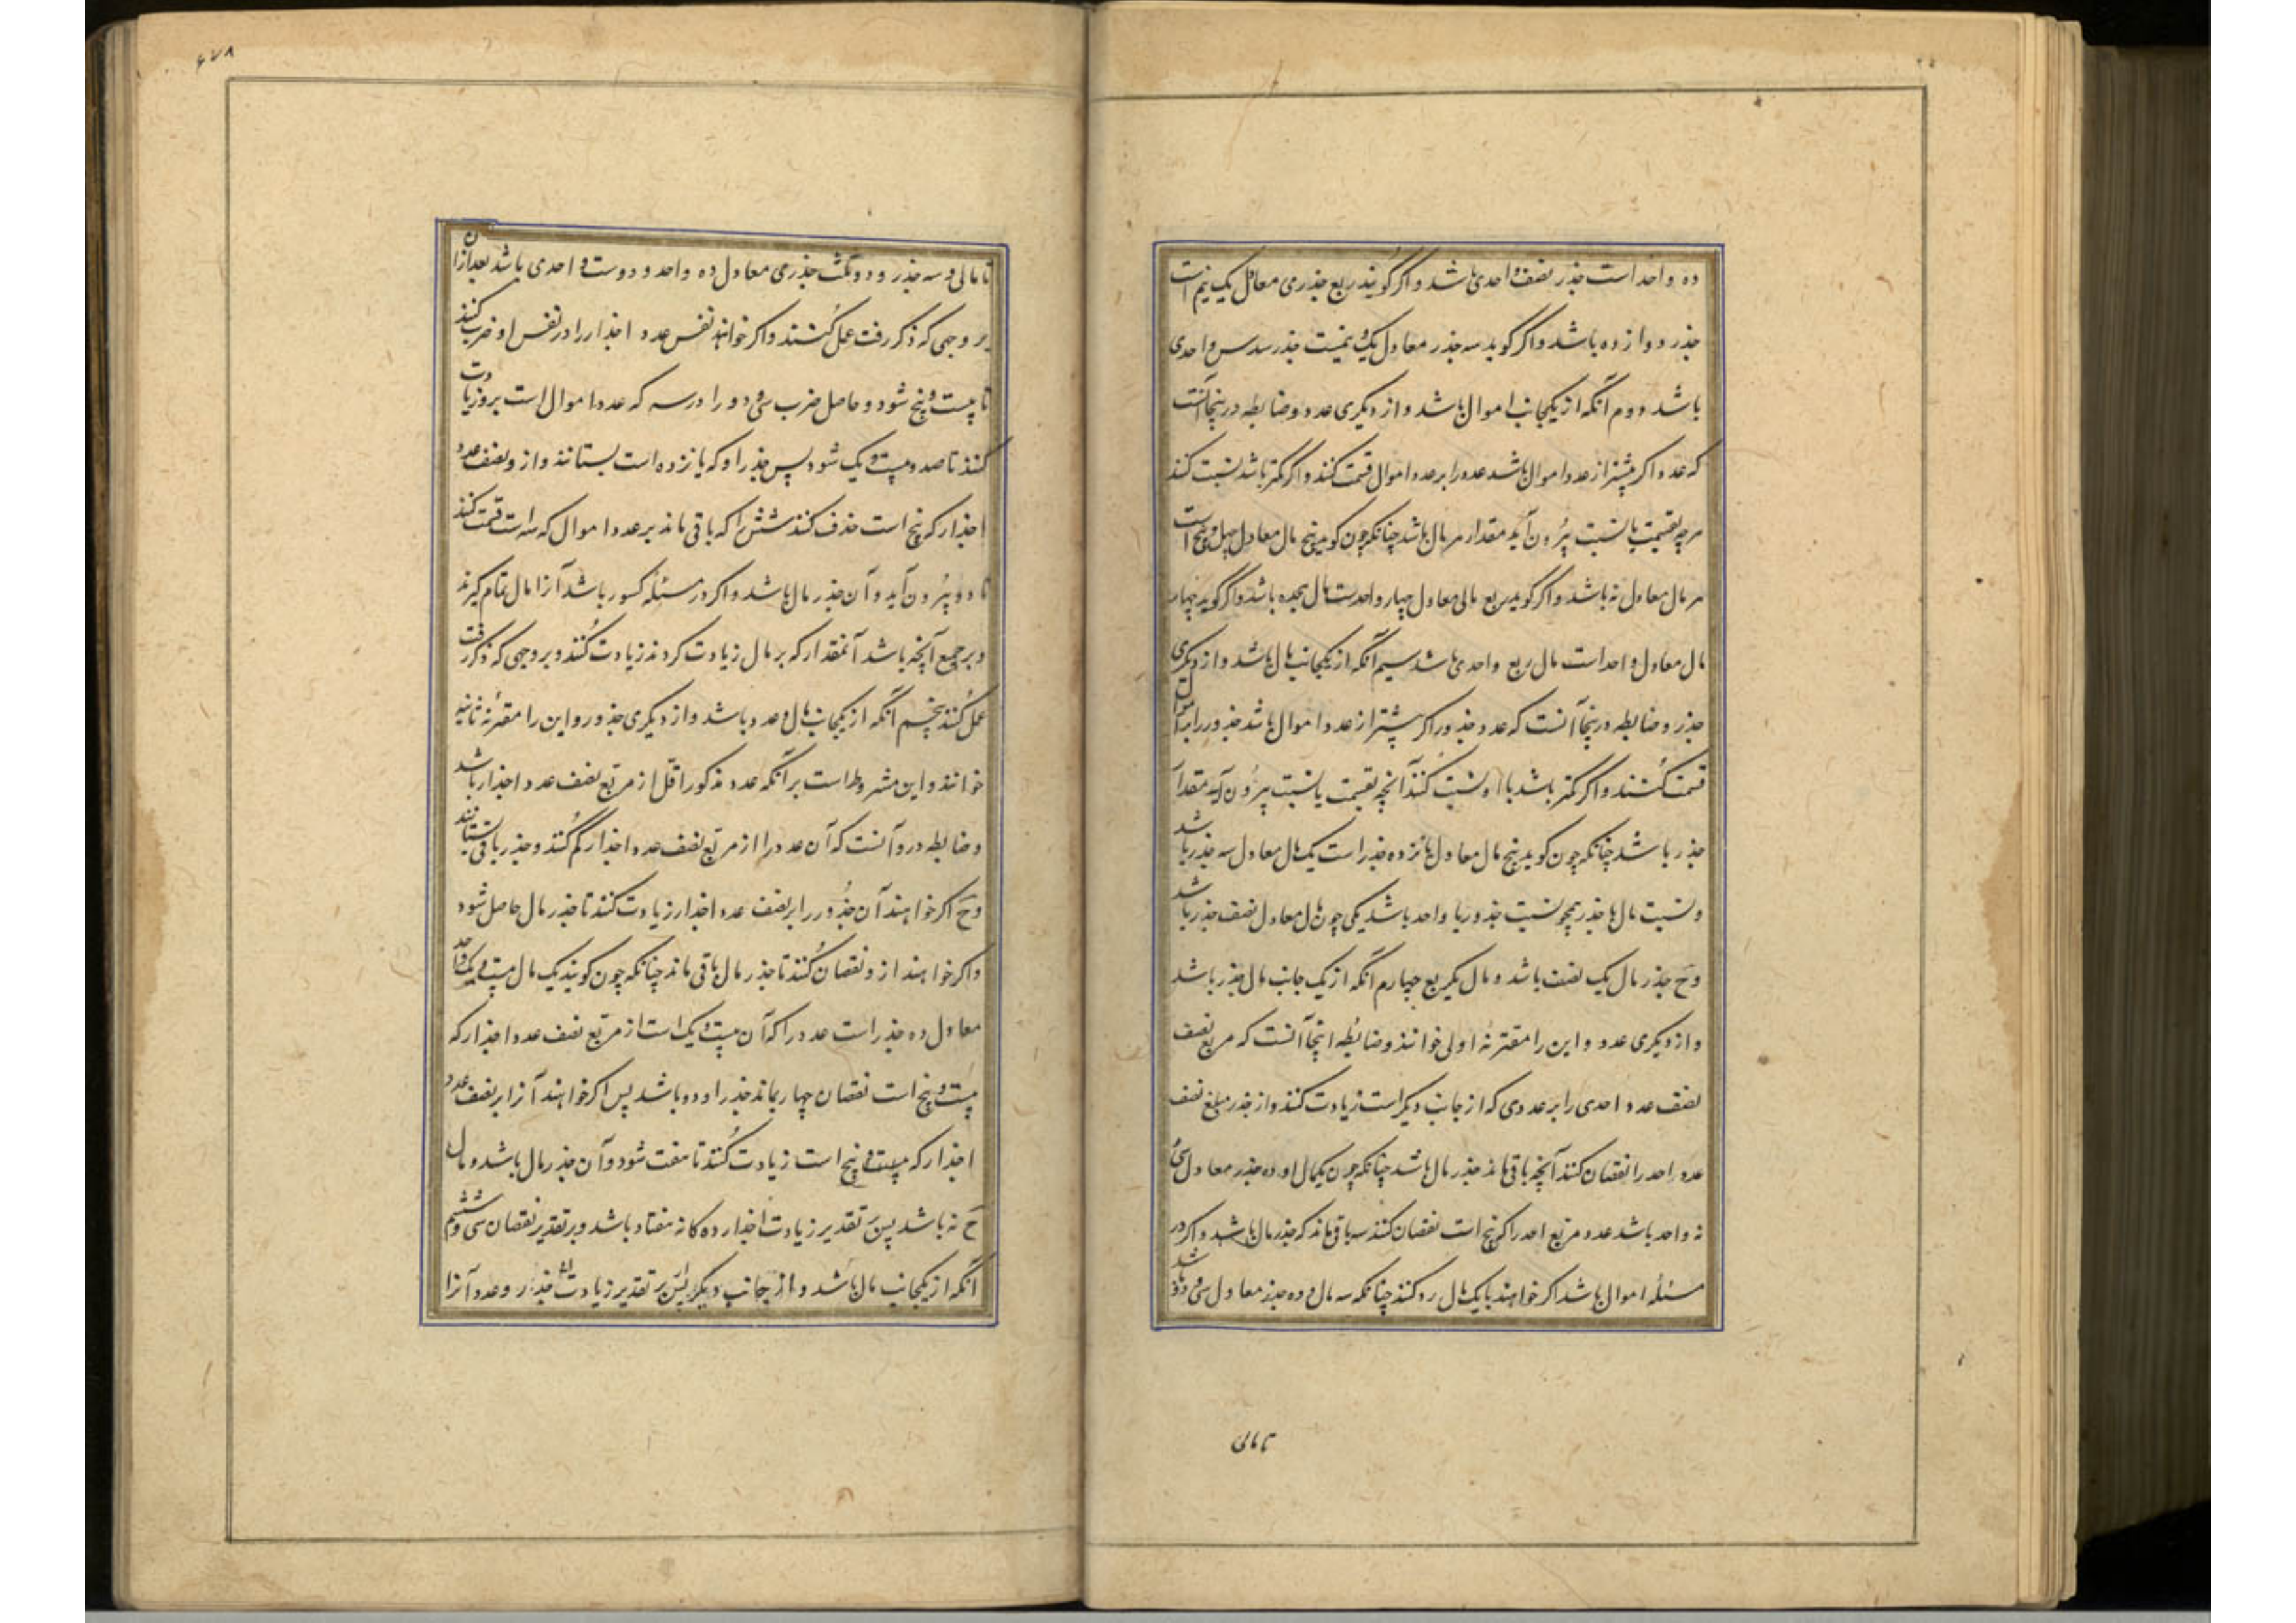 ده واحد است جذر نصف واحدی باشد و اگر گویند ربع جذری معادل یک نیم است
جذر دوازده باشد و اگر گوید سه جذر معادل یک نیمست جذر سدس واحدی
باشد دوم آنکه از یکجانب اموال باشد و از دیگری عدد و ضابطه درینجا آنست
که عدد اگر بیشتر از عدد اموال باشد عدد را بر عدد اموال قسمت کنند و اگر کمتر باشد نسبت کنند
هرچه بقسمت یا نسبت بیرون آید مقدار هر مال باشد چنانکه چون گویند پنج مال معادل چهل و پنج است
هر مال معادل نه باشد و اگر گوید ربع مالی معادل چهار واحدست مال هجده باشد و اگر گوید چهار
مال معادل واحد است مال ربع واحدی باشد سیم آنکه از یکجانب مال باشد و از دیگری
جذر و ضابطه درینجا آنست که عدد جذور اگر بیشتر از عدد اموال باشد جذور را بر اموال
قسمت کنند و اگر کمتر باشد با او نسبت کنند آنچه بقسمت یا نسبت بیرون آید مقدار
جذر باشد چنانکه چون گوید پنج مال معادل پانزده جذر است یک مال معادل سه جذر باشد
و نسبت مال با جذر همچو نسبت جذور با واحد باشد یکی چون مال معادل نصف جذر باشد
وح جذر مال یک نصف باشد و مال یکربع چهارم آنکه از یک جانب مال جذر باشد
و از دیگری عدد و این را مقترنهٔ اولی خوانند و ضابطه اینجا آنست که مربع نصف
نصف عدد احدی را بر عددی که از جانب دیگر است زیادت کنند و از جذر مبلغ نصف
عدد احد را نقصان کنند آنچه باقی ماند جذر مال باشد چنانکه چون یکمال و ده جذر معادل سی
نه واحد باشد عدد مربع احد را که پنج است نقصان کنند سه باقی ماند که جذر مال باشد و اگر در
مسئله اموال باشد اگر خواهند با یک مال رد کنند چنانکه سه مال و ده جذر معادل سی و دو باشد
تا مالی
۶۷۸
تا مالی و سه جذر و دو ثلث جذری معادل ده واحد و دو ثلث واحدی باشد بعد ازان
بر وجهی که ذکر رفت عمل کنند و اگر خواهند نفس عدد اجذار را در نفس او ضرب کنند
تا بیست و پنج شود و حاصل ضرب سی و دو را در سه که عدد اموال است برو زیادت
کنند تا صد و بیست و یک شود پس جذر او که یازده است بستانند و از و نصف عدد
اجذار که پنج است حذف کنند شش را که باقی ماند بر عدد اموال که سه است قسمت کنند
تا دو بیرون آید و آن جذر مال باشد و اگر در مسئله کسور باشد آنرا مال تمام گیرند
و بر جمیع آنچه باشد آنمقدار که بر مال زیادت کردند زیادت کنند و بر وجهی که ذکر رفت
عمل کنند پنجم آنکه از یکجانب مال و عدد باشد و از دیگری جذور و این را مقترنهٔ ثانیه
خوانند و این مشروط است بر آنکه عدد مذکور اقل از مربع نصف عدد اجذار باشد
و ضابطه درو آنست که آن عدد را از مربع نصف عدد اجذار کم کنند و جذر باقی بستانند
وح اگر خواهند آن جذور را بر نصف عدد اجذار زیادت کنند تا جذر مال حاصل شود
و اگر خواهند از و نقصان کنند تا جذر مال باقی ماند چنانکه چون گویند یک مال بیست و یک واحد
معادل ده جذر است عدد را که آن بیست و یک است از مربع نصف عدد اجذار که
بیست و پنج است نقصان چهار بماند جذر او دو باشد پس اگر خواهند آنرا بر نصف عدد
اجذار که بیست و پنج است زیادت کنند تا هفت شود و آن جذر مال باشد و مال
ح نه باشد پس تقدیر زیادت اجذار ده گانه هفتاد باشد و بر تقدیر نقصان سی و ششم
آنکه از یکجانب مال باشد و از جانب دیگر پس بر تقدیر زیادت جذر و عدد آنرا